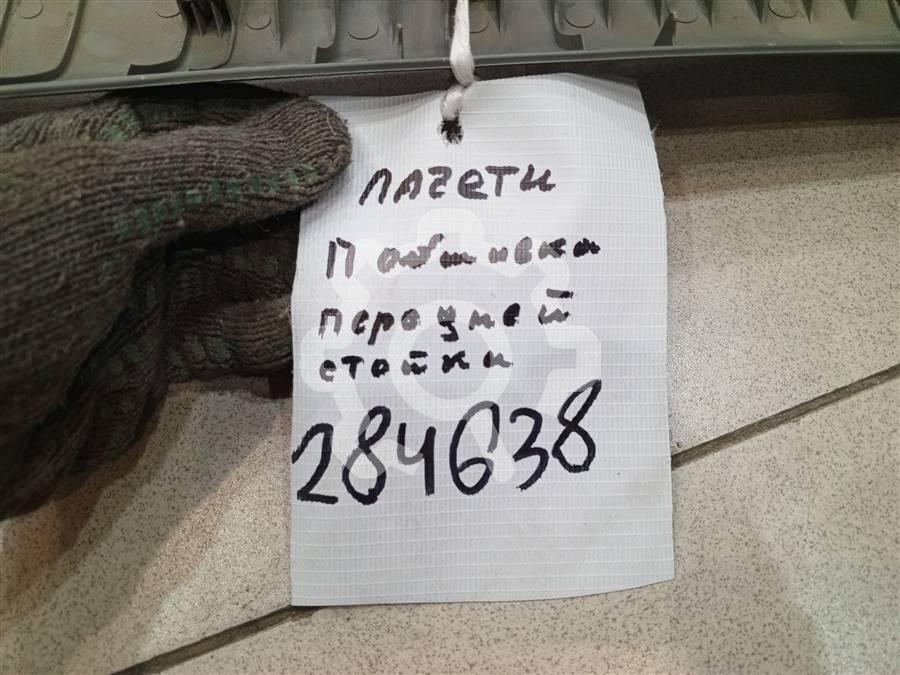 ЛАЧЕТИ
Побшивка
передней
стойки
284638